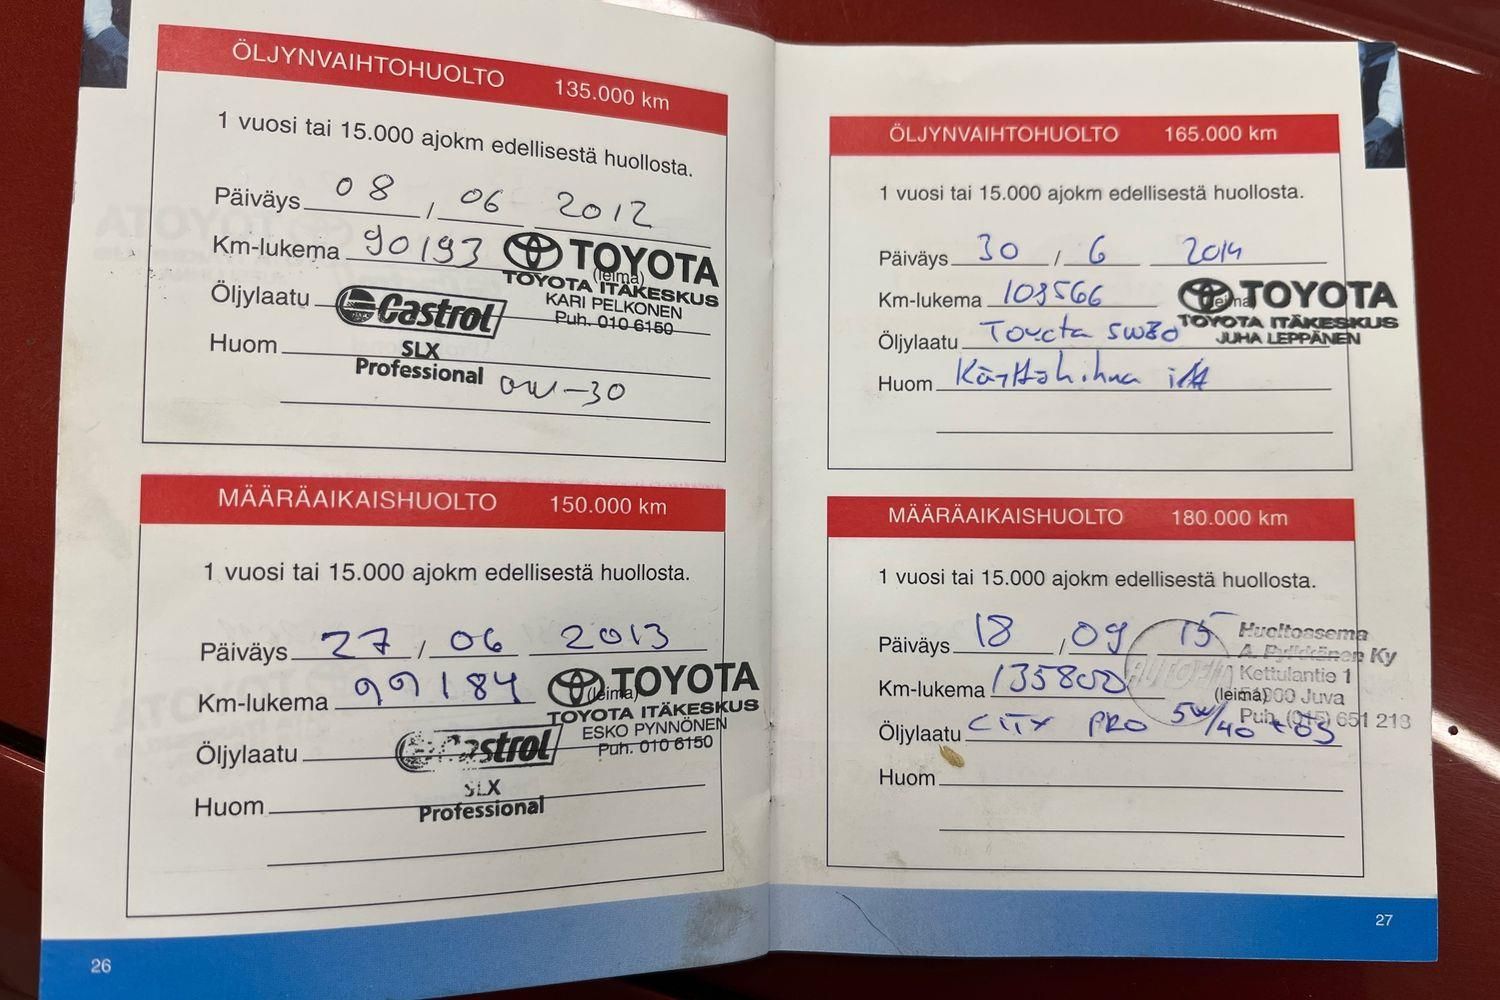 ÖLJYNVAIHTOHUOLTO 135.000 km
1 vuosi tai 15.000 ajokm edellisestä huollosta.
Päiväys 08 / 06 2012
Km-lukema 90193
TOYOTA
(leima)
TOYOTA ITÄKESKUS
KARI PELKONEN
Puh. 010 6150
Öljylaatu Castrol
Huom SLX
Professional 0W-30
MÄÄRÄAIKAISHUOLTO 150.000 km
1 vuosi tai 15.000 ajokm edellisestä huollosta.
Päiväys 27 / 06 2013
Km-lukema 99184
TOYOTA
(leima)
TOYOTA ITÄKESKUS
ESKO PYNNÖNEN
Puh. 010 6150
Öljylaatu Castrol
Huom SLX
Professional
26
ÖLJYNVAIHTOHUOLTO 165.000 km
1 vuosi tai 15.000 ajokm edellisestä huollosta.
Päiväys 30 / 6 2014
Km-lukema 109566
(leima) TOYOTA
TOYOTA ITÄKESKUS
JUHA LEPPÄNEN
Öljylaatu Toyota 5W30
Huom
MÄÄRÄAIKAISHUOLTO 180.000 km
1 vuosi tai 15.000 ajokm edellisestä huollosta.
Päiväys 18 / 09 15
Km-lukema 135800
Huoltoasema
A. Pylkkänen Ky
Kettulantie 1
(leima) Juva
Puh. (015) 651 218
Öljylaatu CITY PRO 5W/40
Huom
27